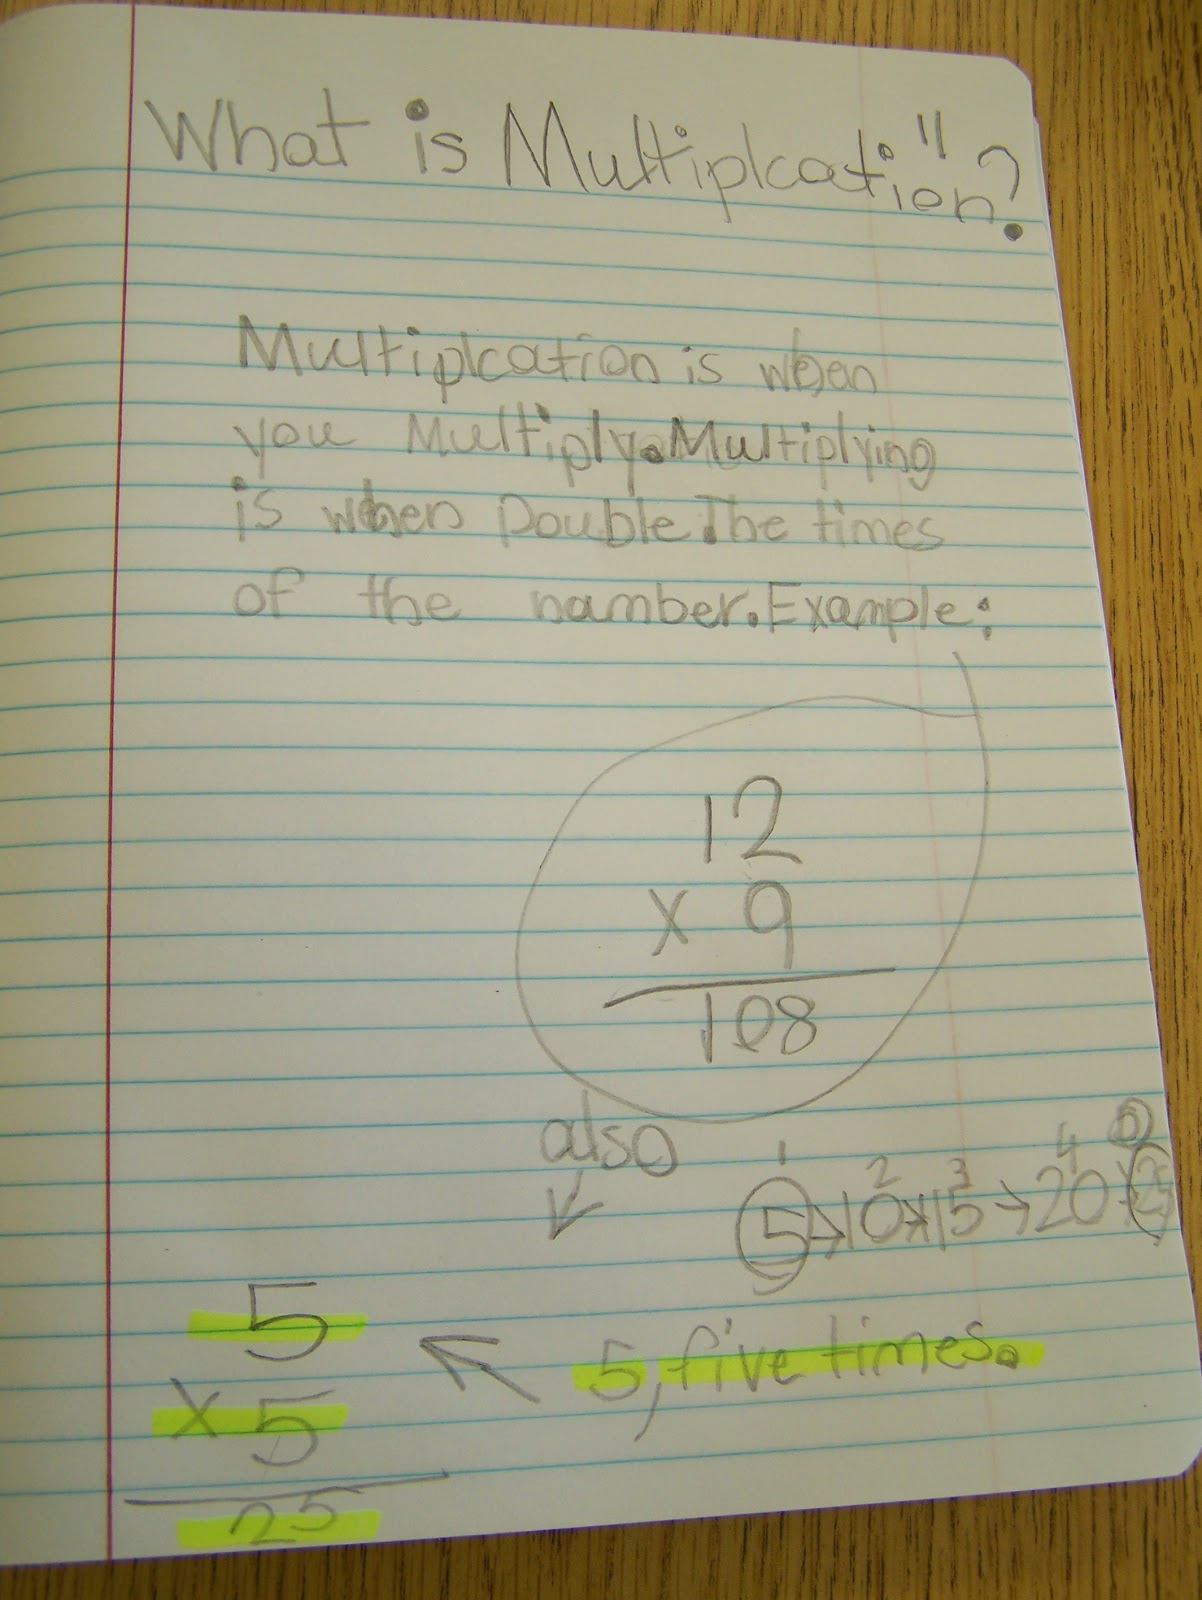 What is Multiplcation"?
Multiplcation is when
you Multiply.Multiplying
is when Double The times
of the namber.Example:
12
x 9
108
also
1 2 3 4 5
5→10→15→20→25
5
x 5
25
5, five times.